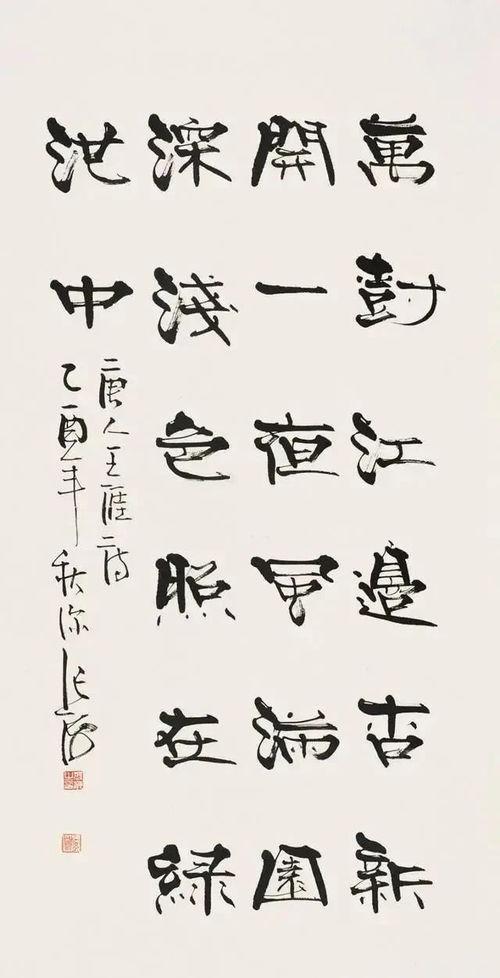 萬尌江邊杏新
開一夜風滿園
深淺色照在綠
池中
唐人王涯詩
乙酉年秋深张海